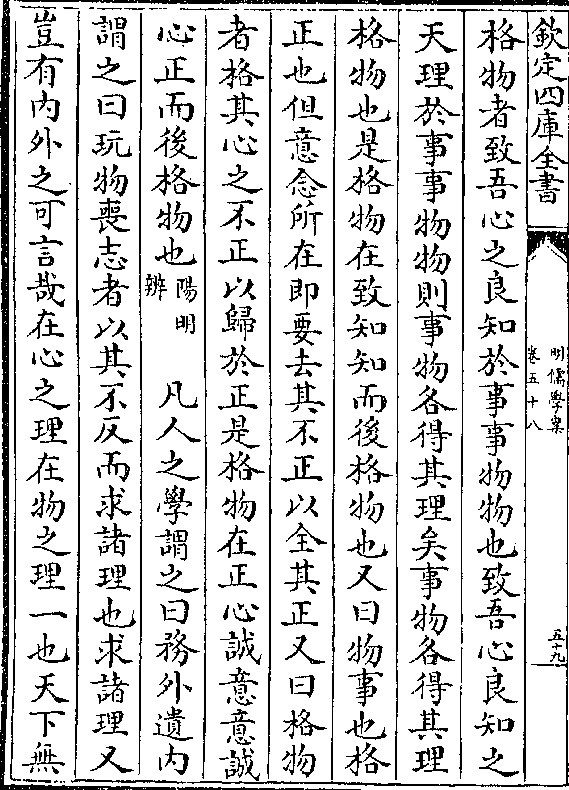 欽定四庫全書
明儒學案
卷五十八
五十九
格物者致吾心之良知於事事物物也致吾心良知之
天理於事事物物則事物各得其理矣事物各得其理
格物也是格物在致知知而後格物也又曰物事也格
正也但意念所在即要去其不正以全其正又曰格物
者格其心之不正以歸於正是格物在正心誠意意誠
心正而後格物也陽明辨 凡人之學謂之曰務外遺内
謂之曰玩物喪志者以其不反而求諸理也求諸理又
豈有内外之可言哉在心之理在物之理一也天下無